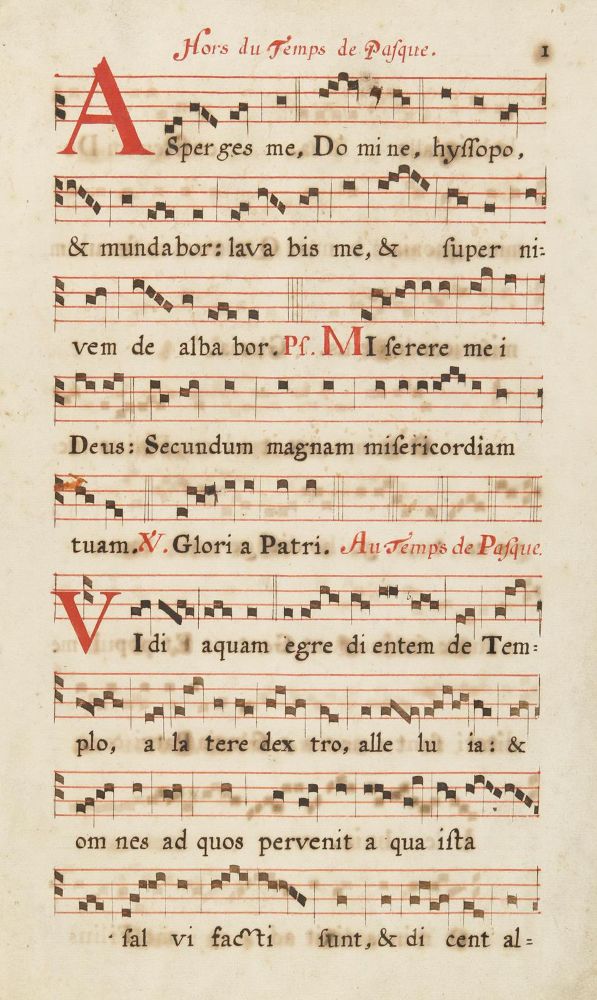 Hors du Temps de Paſque. 1
ASperges me, Do mi ne, hyſſopo,
& mundabor: lava bis me, & ſuper ni=
vem de alba bor. Pſ. MI ſerere me i
Deus: Secundum magnam miſericordiam
tuam. ℣. Glori a Patri. Au Temps de Paſque.
VIdi aquam egre di entem de Tem=
plo, a la tere dex tro, alle lu ia: &
om nes ad quos pervenit a qua iſta
ſal vi facti ſunt, & di cent al=